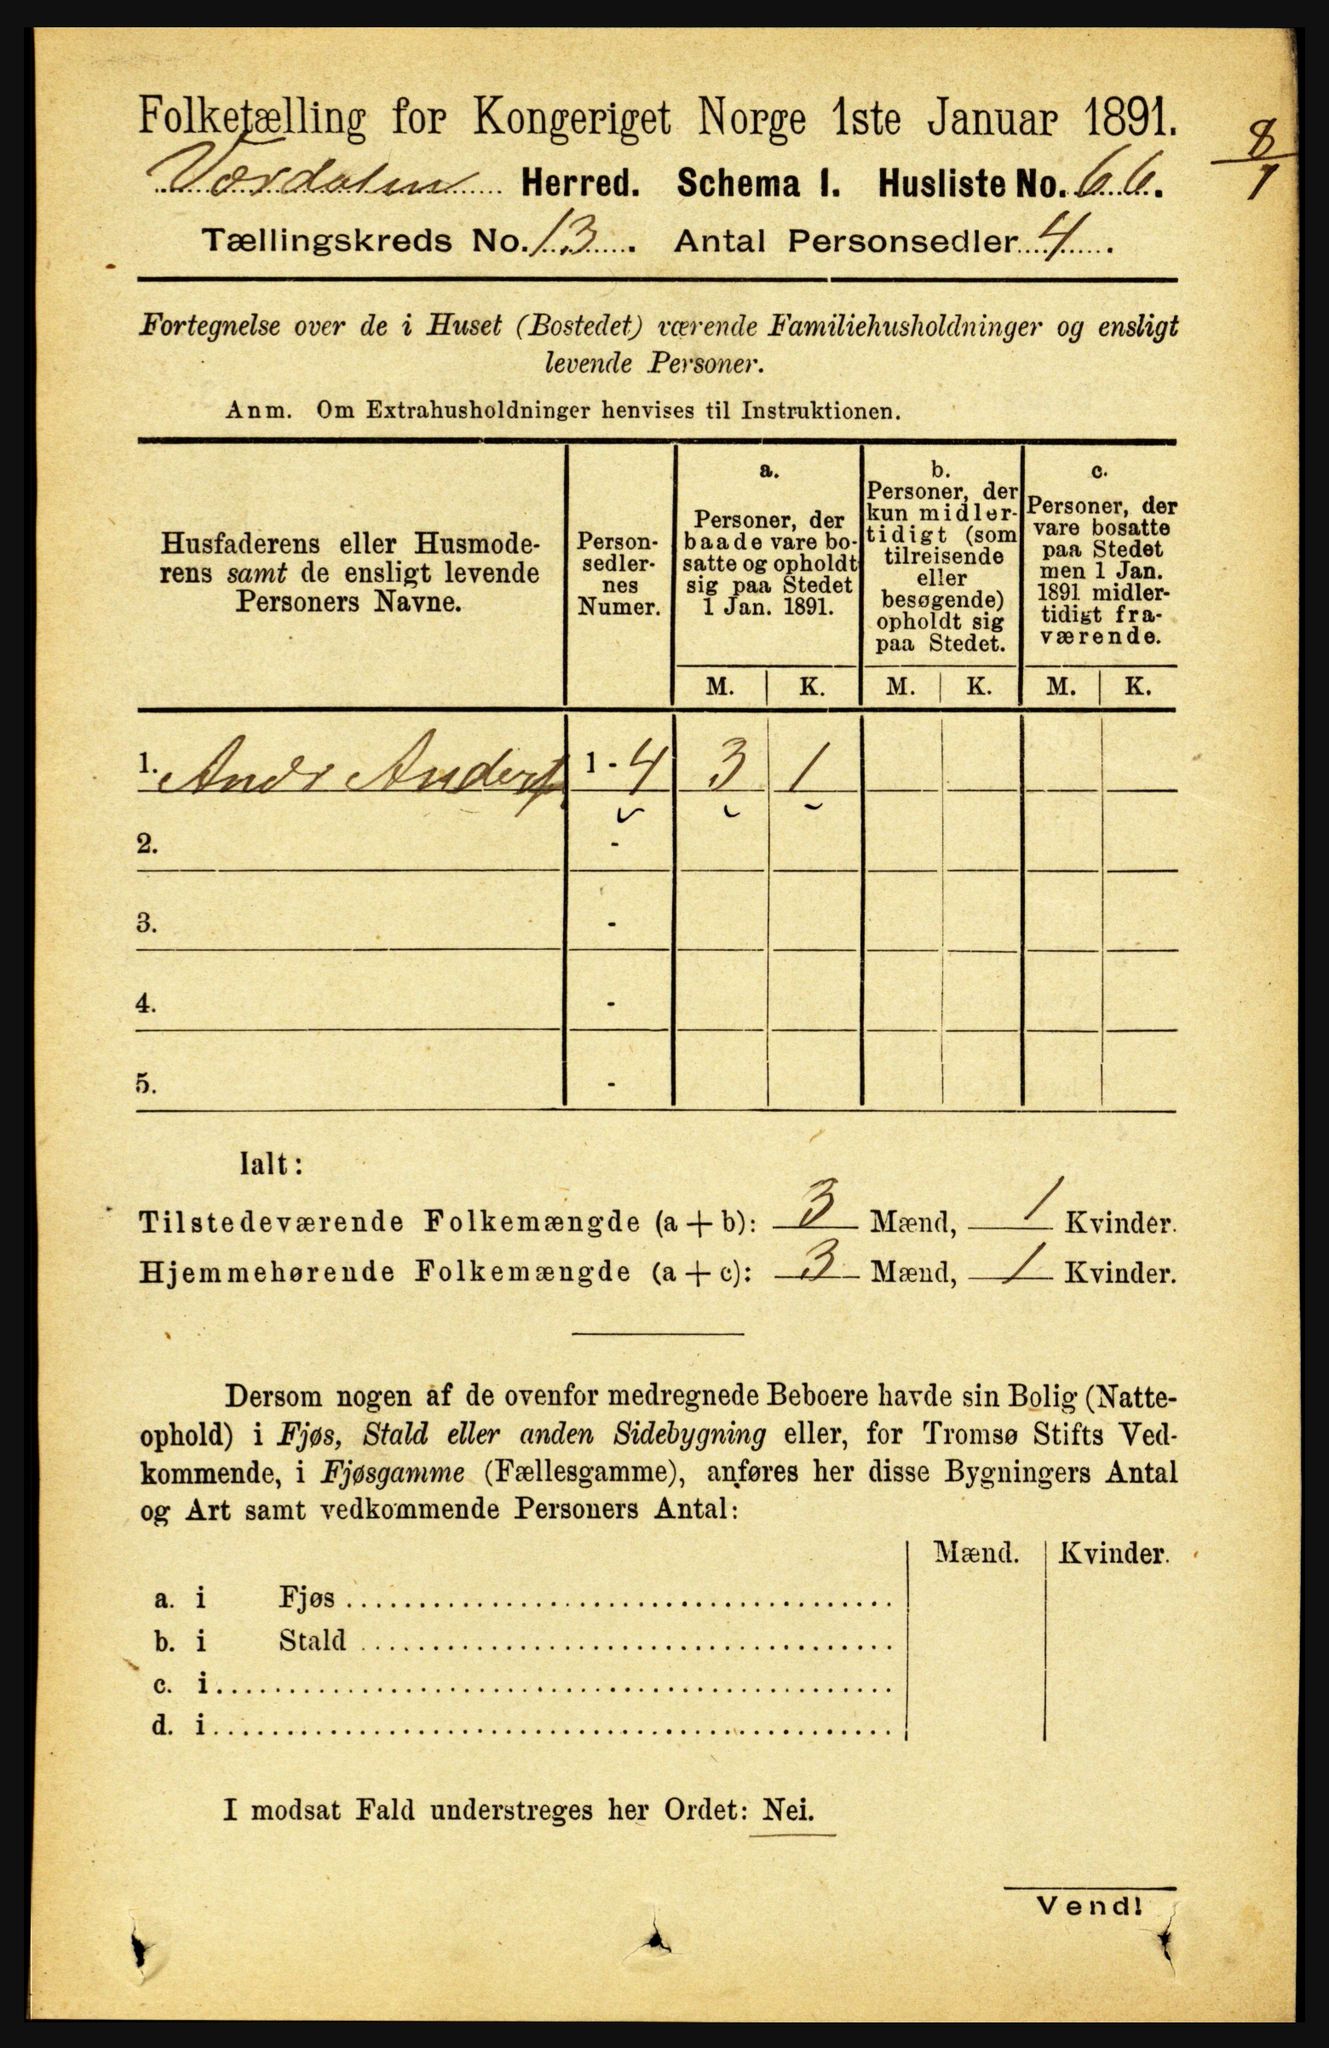 Folketælling for Kongeriget Norge 1ste Januar 1891.
8/1
Værdalen Herred. Schema I. Husliste No. 66.
Tællingskreds No. 13. Antal Personsedler 4.
Fortegnelse over de i Huset (Bostedet) værende Familiehusholdninger og ensligt
levende Personer.
Anm. Om Extrahusholdninger henvises til Instruktionen.
Husfaderens eller Husmode-
rens samt de ensligt levende
Personers Navne.
Person-
sedler-
nes
Numer.
a.
Personer, der
baade vare bo-
satte og opholdt
sig paa Stedet
1 Jan. 1891.
b.
Personer, der
kun midler-
tidigt (som
tilreisende
eller
besøgende)
opholdt sig
paa Stedet.
c.
Personer, der
vare bosatte
paa Stedet
men 1 Jan.
1891 midler-
tidigt fra-
værende.
M. K. M. K. M. K.
1. Andr Anders 1 - 4 3 1
2. -
3. -
4. -
5. -
Ialt:
Tilstedeværende Folkemængde (a + b): 3 Mænd, 1 Kvinder.
Hjemmehørende Folkemængde (a + c): 3 Mænd, 1 Kvinder.
Dersom nogen af de ovenfor medregnede Beboere havde sin Bolig (Natte-
ophold) i Fjøs, Stald eller anden Sidebygning eller, for Tromsø Stifts Ved-
kommende, i Fjøsgamme (Fællesgamme), anføres her disse Bygningers Antal
og Art samt vedkommende Personers Antal:
Mænd. Kvinder.
a. i Fjøs
b. i Stald
c. i
d. i
I modsat Fald understreges her Ordet: Nei.
Vend!